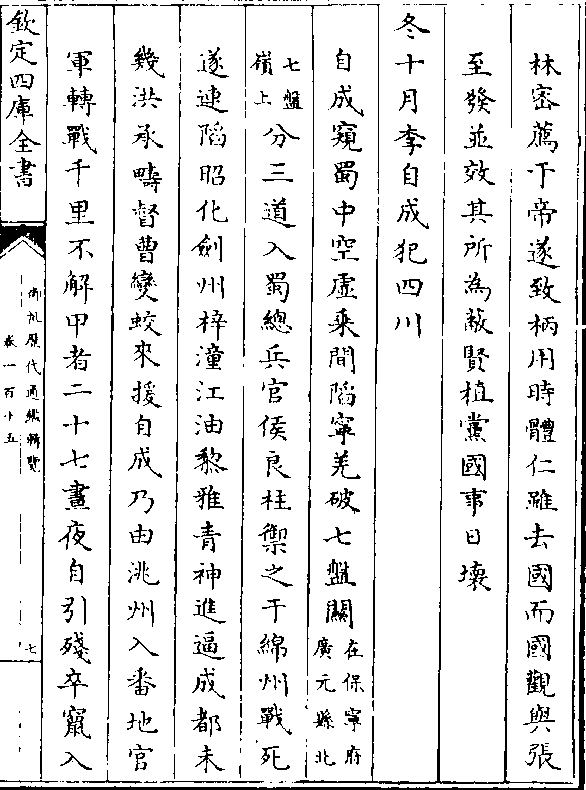 林密薦于帝遂致柄用時體仁雖去國而國觀與張
至發並效其所為蔽賢植黨國事日壞
冬十月李自成犯四川
自成窺蜀中空虛乘間陷寧羌破七盤關在保寧府廣元縣北
七盤嶺上分三道入蜀總兵官侯良柱禦之于綿州戰死
遂連陷昭化劍州梓潼江油黎雅青神進逼成都未
幾洪承疇督曹變蛟來援自成乃由洮州入番地官
軍轉戰千里不解甲者二十七晝夜自引殘卒竄入
欽定四庫全書
御批歷代通鑑輯覽
卷一百十五
七